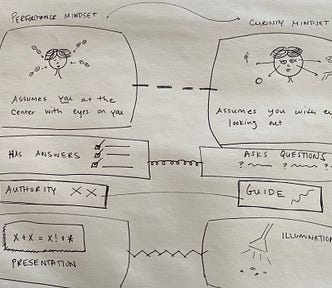 PERFORMANCE MINDSET
CURIOSITY MINDSET
ASSUMES YOU AT THE
CENTER WITH EYES ON YOU
ASSUMES YOU WITH
LOOKING OUT
HAS ANSWERS
ASKS QUESTIONS
? ? ?
AUTHORITY X X
GUIDE
X + X = X! *
PRESENTATION
ILLUMINATION